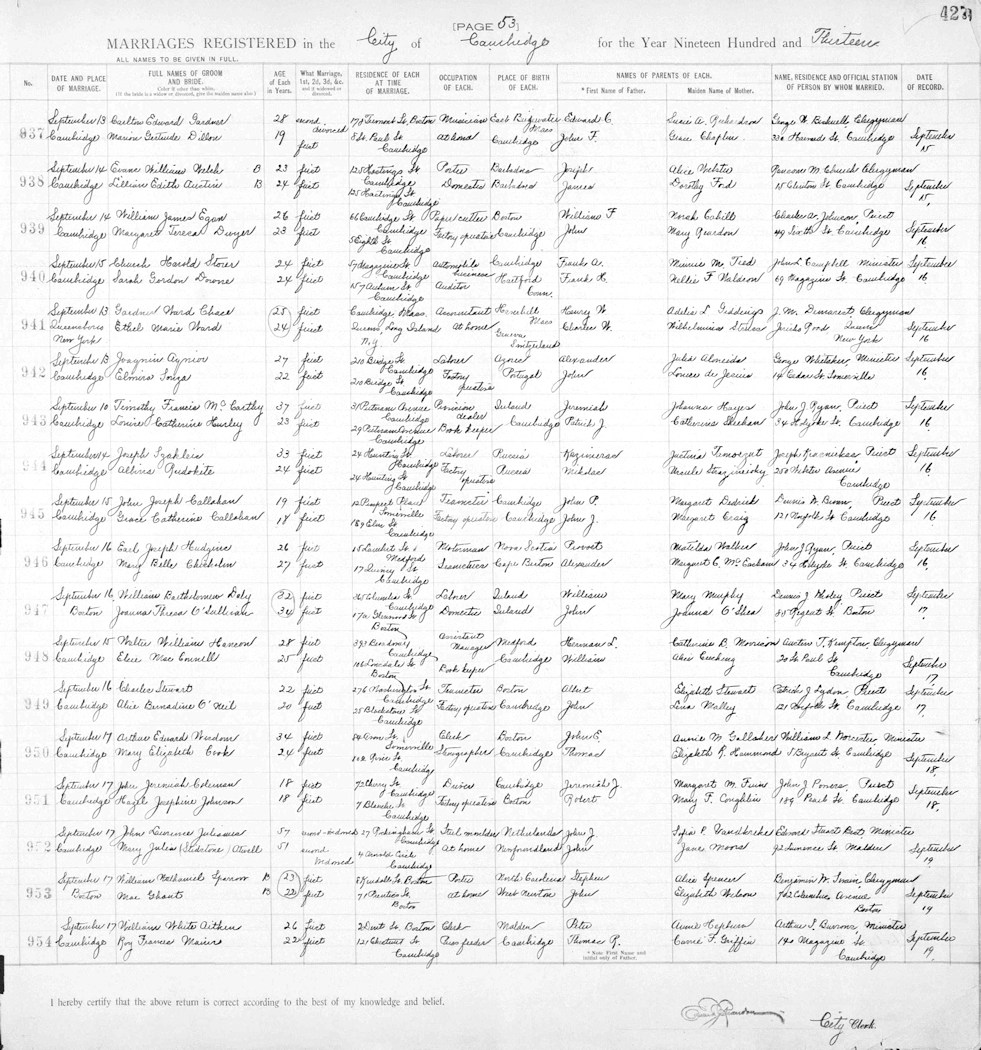 427
[PAGE 53]
MARRIAGES REGISTERED in the City of Cambridge for the Year Nineteen Hundred and Thirteen
ALL NAMES TO BE GIVEN IN FULL.
No. DATE AND PLACE OF MARRIAGE. FULL NAMES OF GROOM AND BRIDE. AGE of Each in Years. What Marriage, 1st, 2d, 3d, &c. and if widowed or divorced. RESIDENCE OF EACH AT TIME OF MARRIAGE. OCCUPATION OF EACH. PLACE OF BIRTH OF EACH. NAMES OF PARENTS OF EACH. * First Name of Father. Maiden Name of Mother. NAME, RESIDENCE AND OFFICIAL STATION OF PERSON BY WHOM MARRIED. DATE OF RECORD.
937 September 13 Carlton Edward Gardner 28 second divorced Tremont St, Boston Musician East Bridgewater Mass Edward C. Susie A. Richardson Clergyman
Cambridge Marion Gertrude Dillon 19 first Pearl St Cambridge at home Cambridge John F. Grace Chaplin St. Cambridge September 15
938 September 14 William Welch B 23 first 125 Hastings St Cambridge Porter Barbados Joseph Alice Webster Clergyman
Cambridge Lillian Edith Austin B 24 first 125 Hastings St Cambridge Domestic Barbados James Dorothy Ford 15 St Cambridge September 15
939 September 14 William James Egan 26 first 66 Cambridge St Cambridge Paper cutter Boston William F Norah Cahill Charles A. Johnson, Priest September
Cambridge Margaret Teresa Dwyer 23 first 5 Eighth St Cambridge Factory operative Cambridge John Mary Reardon 49 Sixth St. Cambridge 16
940 September 15 Church Harold Stover 24 first 57 Magazine St Cambridge Automobile business Cambridge Frank A. Minnie M. John L. Campbell Minister September
Cambridge Sarah Gordon Downe 24 first 157 Auburn St. Cambridge Auditor Hartford Conn. Frank H. Nellie F Waldron 69 Magazine St. Cambridge 16.
941 September 13 Gardner Ward Chace 25 first Cambridge Mass. Accountant Haverhill Mass Henry W Adelia L Giddings J. M. Clergyman
Queensboro New York Ethel Marie Ward 24 first Queens, Long Island N.Y. At home Geneva Switzerland Charles W. Wilhelmina Jericho Road, Queens New York September 16
942 September 13 27 first 210 Bridge St Cambridge Laborer Azores Alexander Julia Almeida George Whitaker, Minister September
Cambridge Elmira Souza 22 first 210 Bridge St. Cambridge Factory operative Portugal John Louise de Jesus 14 Cedar St. Somerville 16
943 September 10 Timothy Francis McCarthy 37 first 31 Putnam Avenue Cambridge Provision dealer Ireland Jeremiah Johanna Hayes John J. Ryan, Priest September
Cambridge Louise Catherine Hurley 23 first 29 Putnam Avenue Cambridge Book keeper Cambridge Patrick J. Catherine Sheehan 34 Holyoke St. Cambridge 16
944 September 14 Joseph 33 first 24 Hunting St Cambridge Laborer Russia Joseph Priest September
Cambridge Albina 24 first 24 Hunting St Cambridge Factory operative Russia Nicholas 250 Webster Avenue Cambridge 16
945 September 15 John Joseph Callahan 19 first 12 Prospect Place Somerville Teamster Cambridge John P. Margaret Dennis Priest September
Cambridge Grace Catherine Callahan 18 first 189 Elm St Cambridge Factory operative Cambridge John J. Margaret Craig 121 Norfolk St Cambridge 16
946 September 16 Earl Joseph Hudgins 26 first 15 Lambert St Medford Motorman Nova Scotia Provost Matilda Walker John J Ryan, Priest September
Cambridge Mary Belle Chisholm 27 first 17 Surrey St Cambridge Cape Breton Alexander Margaret C. McEachern 34 Holyoke St. Cambridge 16
947 September 16 William Bartholomew Daly 32 first 365 Columbia St Cambridge Laborer Ireland William Mary Murphy Dennis J Priest September
Boston Joanna Theresa O'Sullivan 34 first Boston Domestic Ireland John Joanna O'Shea 35 Regent St Boston 17
948 September 15 Walter William 28 first Cambridge Assistant Manager Medford Herman L. Catherine B. Morrison Austin T. Kempton Clergyman
Cambridge Elsie Mae Connell 25 first 116 Boston Book keeper Cambridge William Alice Cushing 20 St Paul St Cambridge September 17
949 September 16 Charles Stewart 22 first 276 Washington St Cambridge Teamster Boston Albert Elizabeth Stewart Patrick J Lydon, Priest September
Cambridge Alice Bernadine O'Neil 20 first 25 Blackstone St Cambridge Factory operative Cambridge John Lena Malley 121 Norfolk St. Cambridge 17
950 September 17 Arthur Edward Windom 34 first Somerville Clerk Boston John E. Annie M. Gallagher William L Worcester, Minister
Cambridge Mary Elizabeth Cook 24 first River St Cambridge Stenographer Cambridge Thomas Elizabeth R. Hammond 5 Bryant St Cambridge September 18
951 September 17 John Jeremiah Coleman 18 first Cherry St. Cambridge Driver Cambridge Jeremiah J. Margaret M. John J. Powers, Priest September
Cambridge Hazel Josephine Johnson 18 first 7 Blanche St Cambridge Factory operative Boston Robert Mary F. Coughlin Pearl St. Cambridge 18
952 September 17 John Laurence 57 second-widowed 27 Rockingham St Cambridge Steel moulder Netherlands John J. Sofia P. Edward Stuart Best, Minister
Cambridge Mary Julia Atwell 51 second widowed 4 Arnold Circle Cambridge At home Newfoundland John Jane Moore 92 Lawrence St Malden September 19
953 September 17 William Nathaniel Sparrow B 23 first 8 Kendall St. Boston Porter North Carolina Stephen Alice Spencer Benjamin W. Swain, Clergyman
Boston Mae Ghants B 22 first 71 St Boston at home West Newton John Elizabeth Wilson 782 Columbus Avenue Boston September 19
954 September 17 William White Aitken 26 first 2 Dent St, Boston Clerk Malden Peter Annie Hepburn Arthur L Minister
Cambridge Roy Frances Mains 22 first 121 Chestnut St Cambridge Press feeder Cambridge Thomas R. Carrie F. Griffin 140 Magazine St. Cambridge September 19.
* Note First Name and Initial only of Father.
I hereby certify that the above return is correct according to the best of my knowledge and belief.
City Clerk.